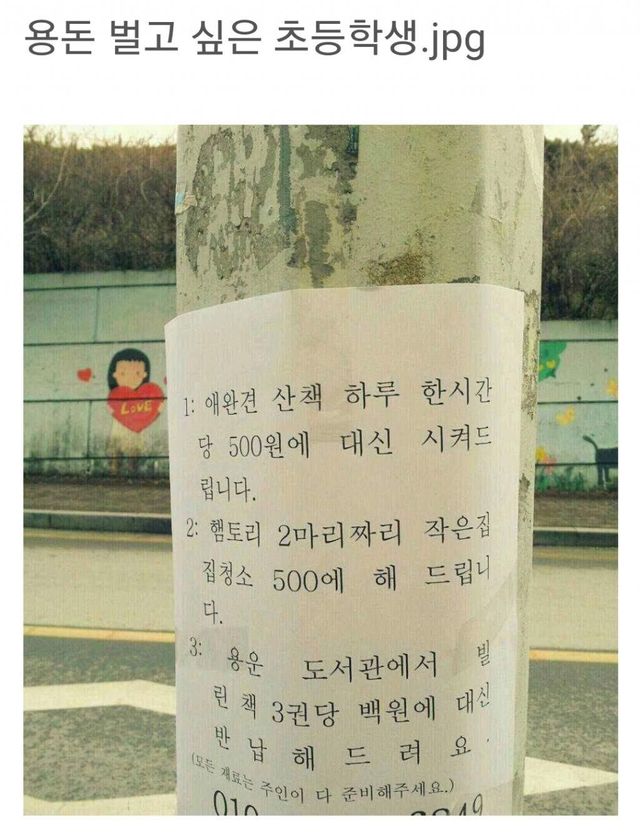 용돈 벌고 싶은 초등학생.jpg
LOVE
1: 애완견 산책 하루 한시간
당 500원에 대신 시켜드
립니다.
2: 햄토리 2마리짜리 작은집
집청소 500에 해 드립니
다.
3: 용운 도서관에서 빌
린 책 3권당 백원에 대신
반납해드려요.
(모든 재료는 주인이 다 준비해주세요.)
010